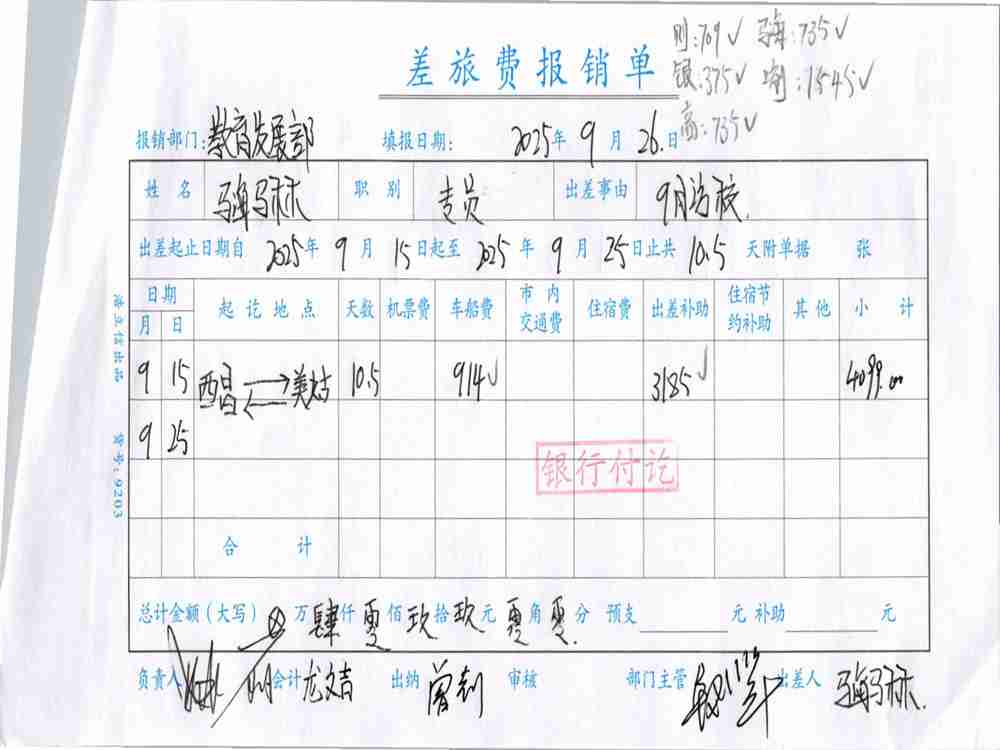 则:709√ 海:735√
差旅费报销单 银:375√ :1545√
高:735√
报销部门:教育发展部 填报日期: 2025年9月26日
姓名 海马秋 职别 专员 出差事由 9月访校.
出差起止日期自2025年9月15日起至2025年9月25日止共10.5天附单据 张
日期 起讫地点 天数 机票费 车船费 市内交通费 住宿费 出差补助 住宿节约补助 其他 小计
月 日
9 15 西昌 美姑 10.5 914√ 3185√ 4099.00
9 25
银行付讫
合计
总计金额(大写)⊗万肆仟零佰玖拾玖元零角零分 预支 元 补助 元
负责人 会计 龙文吉 出纳 曾利 审核 部门主管 出差人
货号:9203